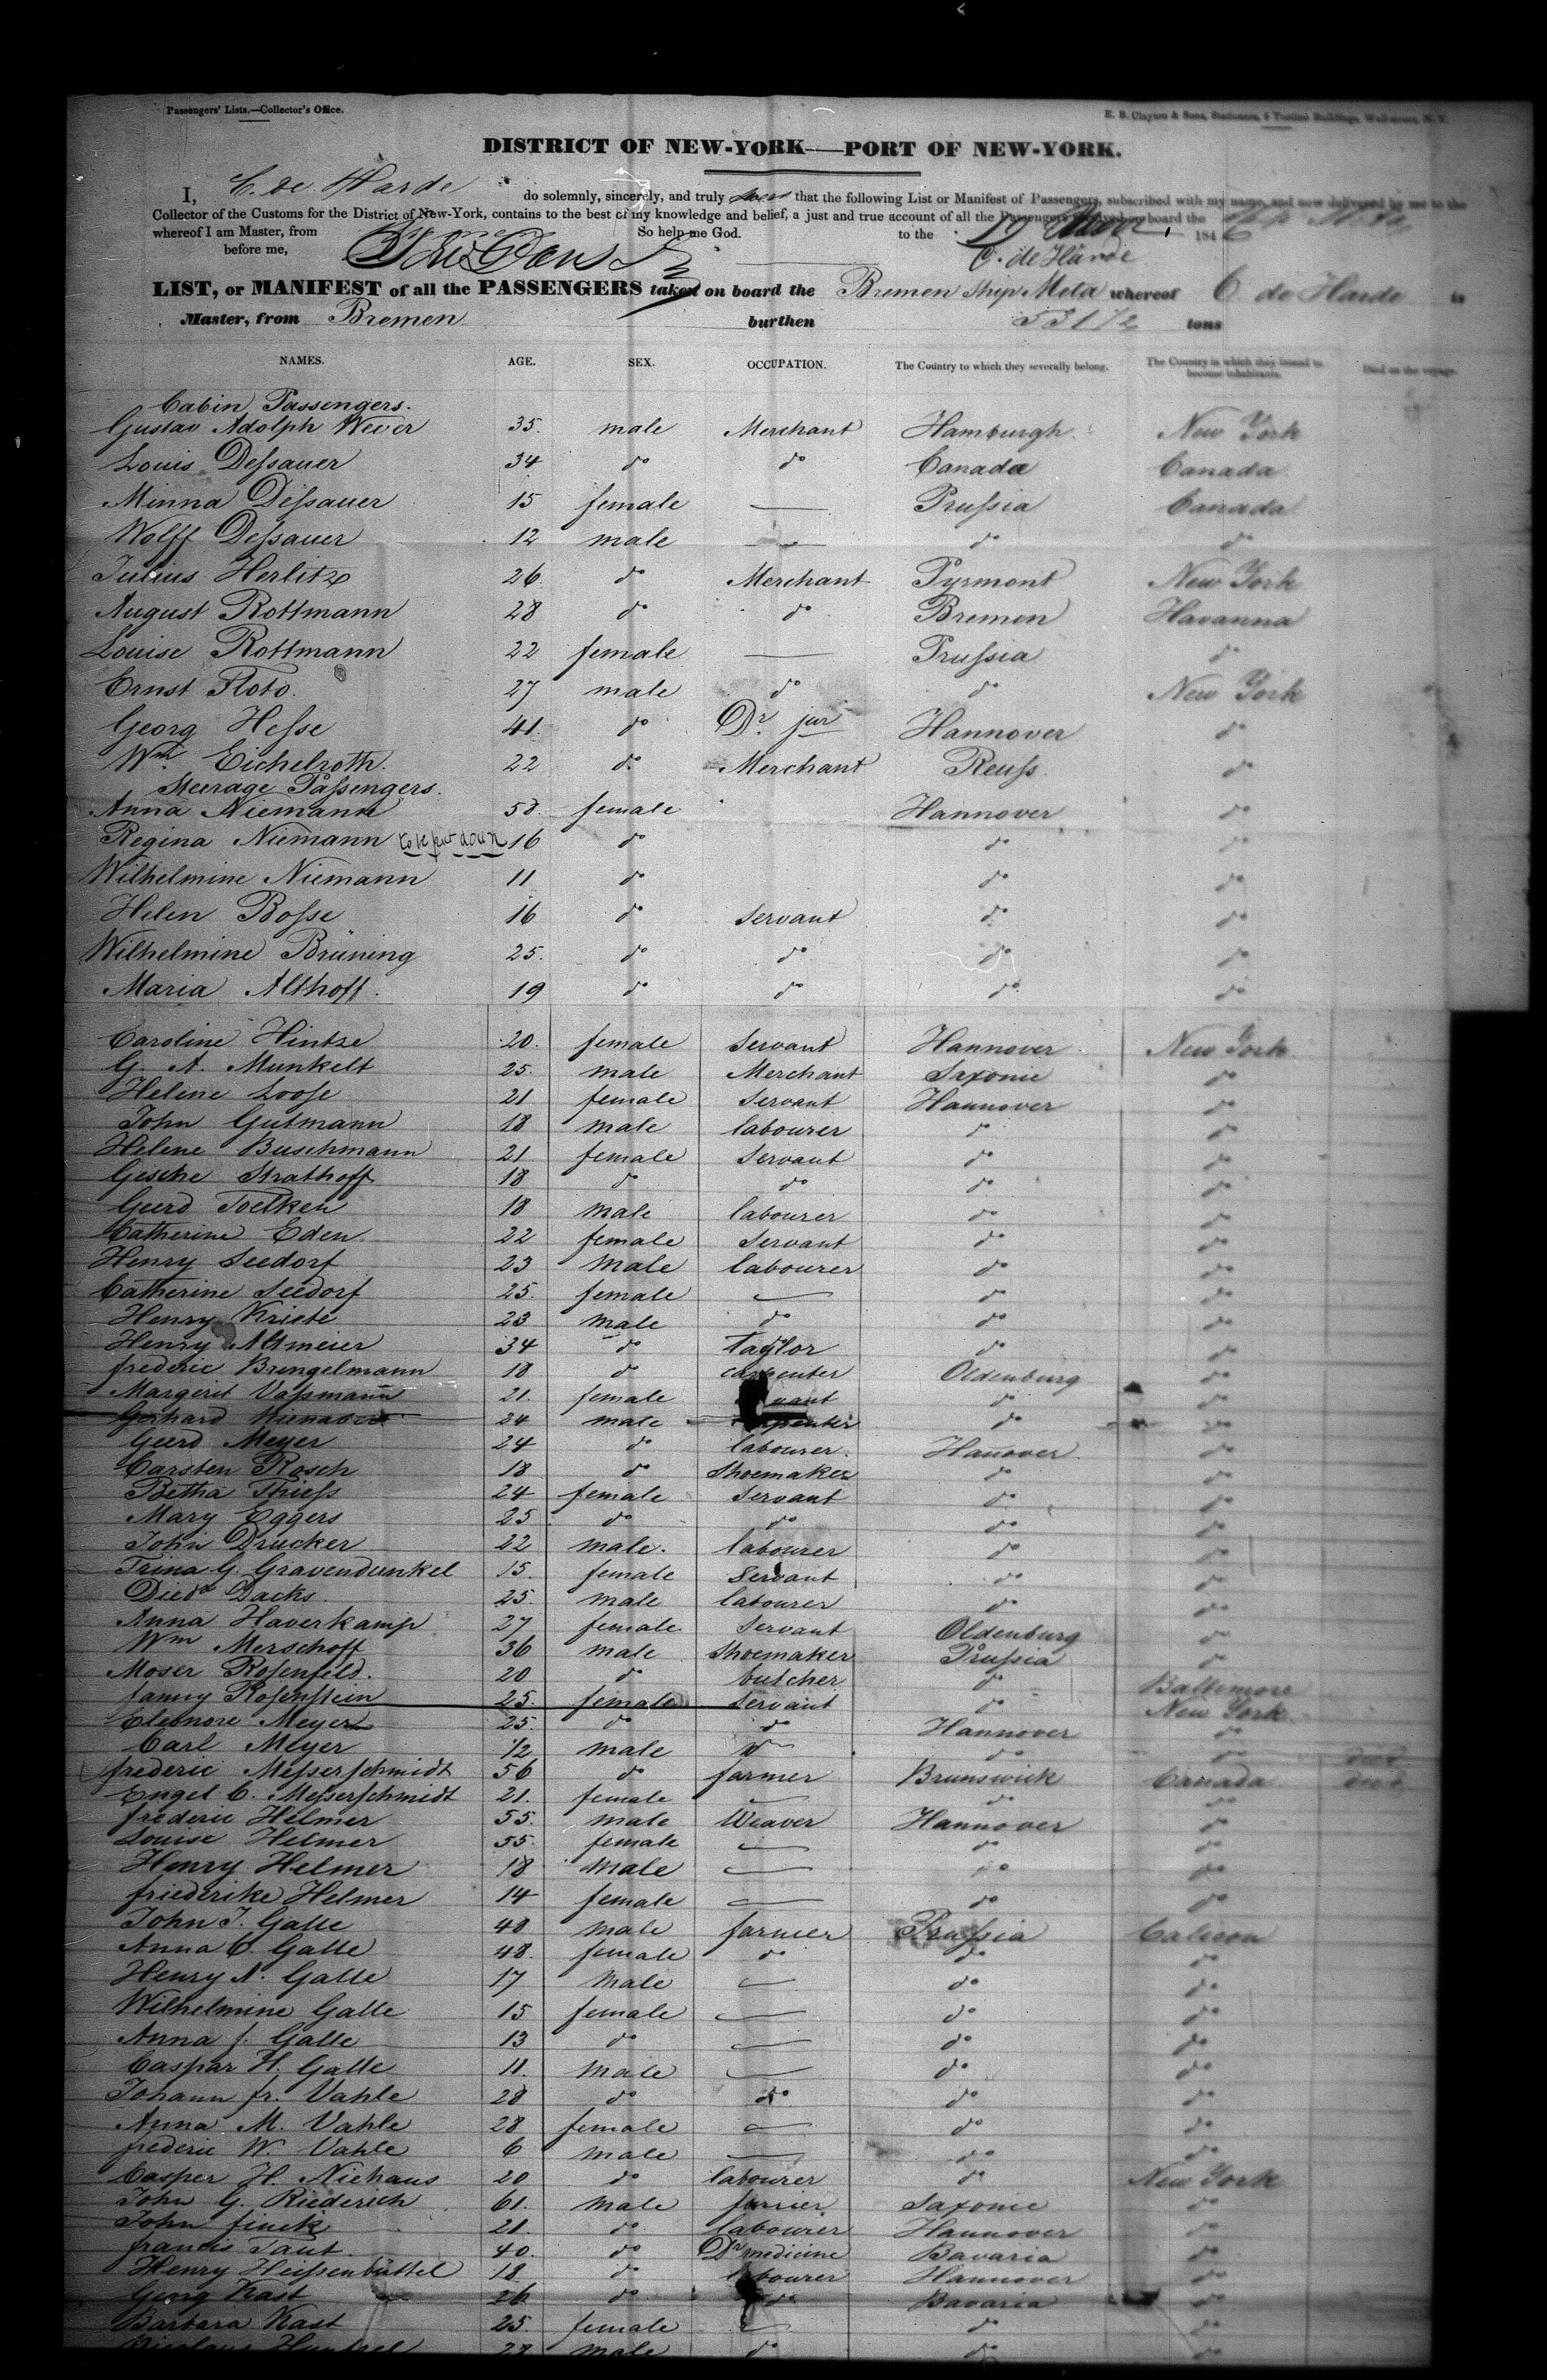 Passengers' Lists.—Collector's Office.
E. B. Clayton & Sons, Stationers, Buildings, Wall-street, N. Y.
DISTRICT OF NEW-YORK—PORT OF NEW-YORK.
I, C. de Harde do solemnly, sincerely, and truly swear that the following List or Manifest of Passengers, subscribed with my name, and now delivered by me to the
Collector of the Customs for the District of New-York, contains to the best of my knowledge and belief, a just and true account of all the Passengers received on board the
whereof I am Master, from So help me God. to the 184
before me, C. de Harde
LIST, or MANIFEST of all the PASSENGERS taken on board the Bremen Ship Meta whereof C de Harde is
Master, from Bremen burthen tons
NAMES. AGE. SEX. OCCUPATION. The Country to which they severally belong. The Country in which they intend to become inhabitants. Died on the voyage.
Cabin Passengers.
Gustav Adolph Wever 35. male Merchant Hamburgh New York
Louis Dessauer 34 do do Canada Canada
Minna Dessauer 15 female — Prussia Canada
Wolff Dessauer 12 male — do do
Julius Herlitz 26 do Merchant Pyrmont New York
August Rottmann 28 do do Bremen Havanna
Louise Rottmann 22 female — Prussia do
Ernst Floto. 27 male do do New York
Georg Hesse 41. do Dr. jur Hannover do
Wm. Eichelroth. 22 do. Merchant Reuss. do
Steerage Passengers.
Anna Niemann 58 female Hannover do
Regina Niemann 16 do do do
Wilhelmine Niemann 11 do do do
Helen Bosse 16 do Servant do do
Wilhelmine Brüning 25. do do do do
Maria Althoff. 19 do do do do
Caroline Hintze 20. female Servant Hannover New York
G. A. Munkelt 25. male Merchant Saxonie do
Helene Loose 21 female Servant Hannover do
John Gutmann 18 male labourer do do
Helene Buschmann 21 female Servant do do
Gesche Strathoff 18 do do do do
Geerd Toelken 18 male labourer do do
Catherine Eden 22 female Servant do do
Henry Seedorf 23 Male labourer do do
Catherine Seedorf 25. female — do do
Henry Kriete 23 male do do do
Henry Altmeier 34 do taylor do do
frederic Brengelmann 18 do carpenter Oldenburg do
Margerit Vassmann 21. female do do
Gerhard 24 male do do
Geerd Meyer 24 do labourer. Hanover do
Carsten Rosch 18 do Shoemaker do do
Betha Thiess 24 female Servant do do
Mary Eggers 25 do do do do
John Drucker 22 male. labourer do do
Trina G. Gravendunkel 15. female Servant do do
Diedr Dacks. 25. male labourer do do
Anna Haverkamp 27 female Servant Oldenburg do
Wm Merschoff 36 male Shoemaker Prussia do
Moser Rosenfeld. 20 do butcher do Baltimore
fanny Rosenstein 25. female Servant do New York
Eleonore Meyer 25. do do Hannover do
Carl Meyer 1/2 male do do
frederic Messerschmidt 56 do farmer Brunswick Canada
Engel C. Messerschmidt 21. female — do do
frederic Helmer 55. male Weaver Hannover do
Louise Helmer 55. female — do do
Henry Helmer 18 Male — do do
friederike Helmer 14 female — do do
John J. Galle 48 Male farmer Prussia
Anna C. Galle 48. female do do do
Henry A. Galle 17 Male — do do
Wilhelmine Galle 15 female — do do
Anna f. Galle 13 do — do do
Caspar H. Galle 11. Male — do do
Johann fr. Vahle 28 do do do do
Anna M. Vahle 28 female — do do
frederic W. Vahle 6 male — do do
Casper H. Niehaus 20 do labourer do New York
John G. Riederich 61. Male Saxonie do
John finck 21. do labourer Hannover do
francis Taut 40. do Dr medicine Bavaria do
Henry Heissenbüttel 18. do labourer Hannover do
Georg Kast 26 do do Bavaria do
Barbara Kast 25. female — do do
male do do do